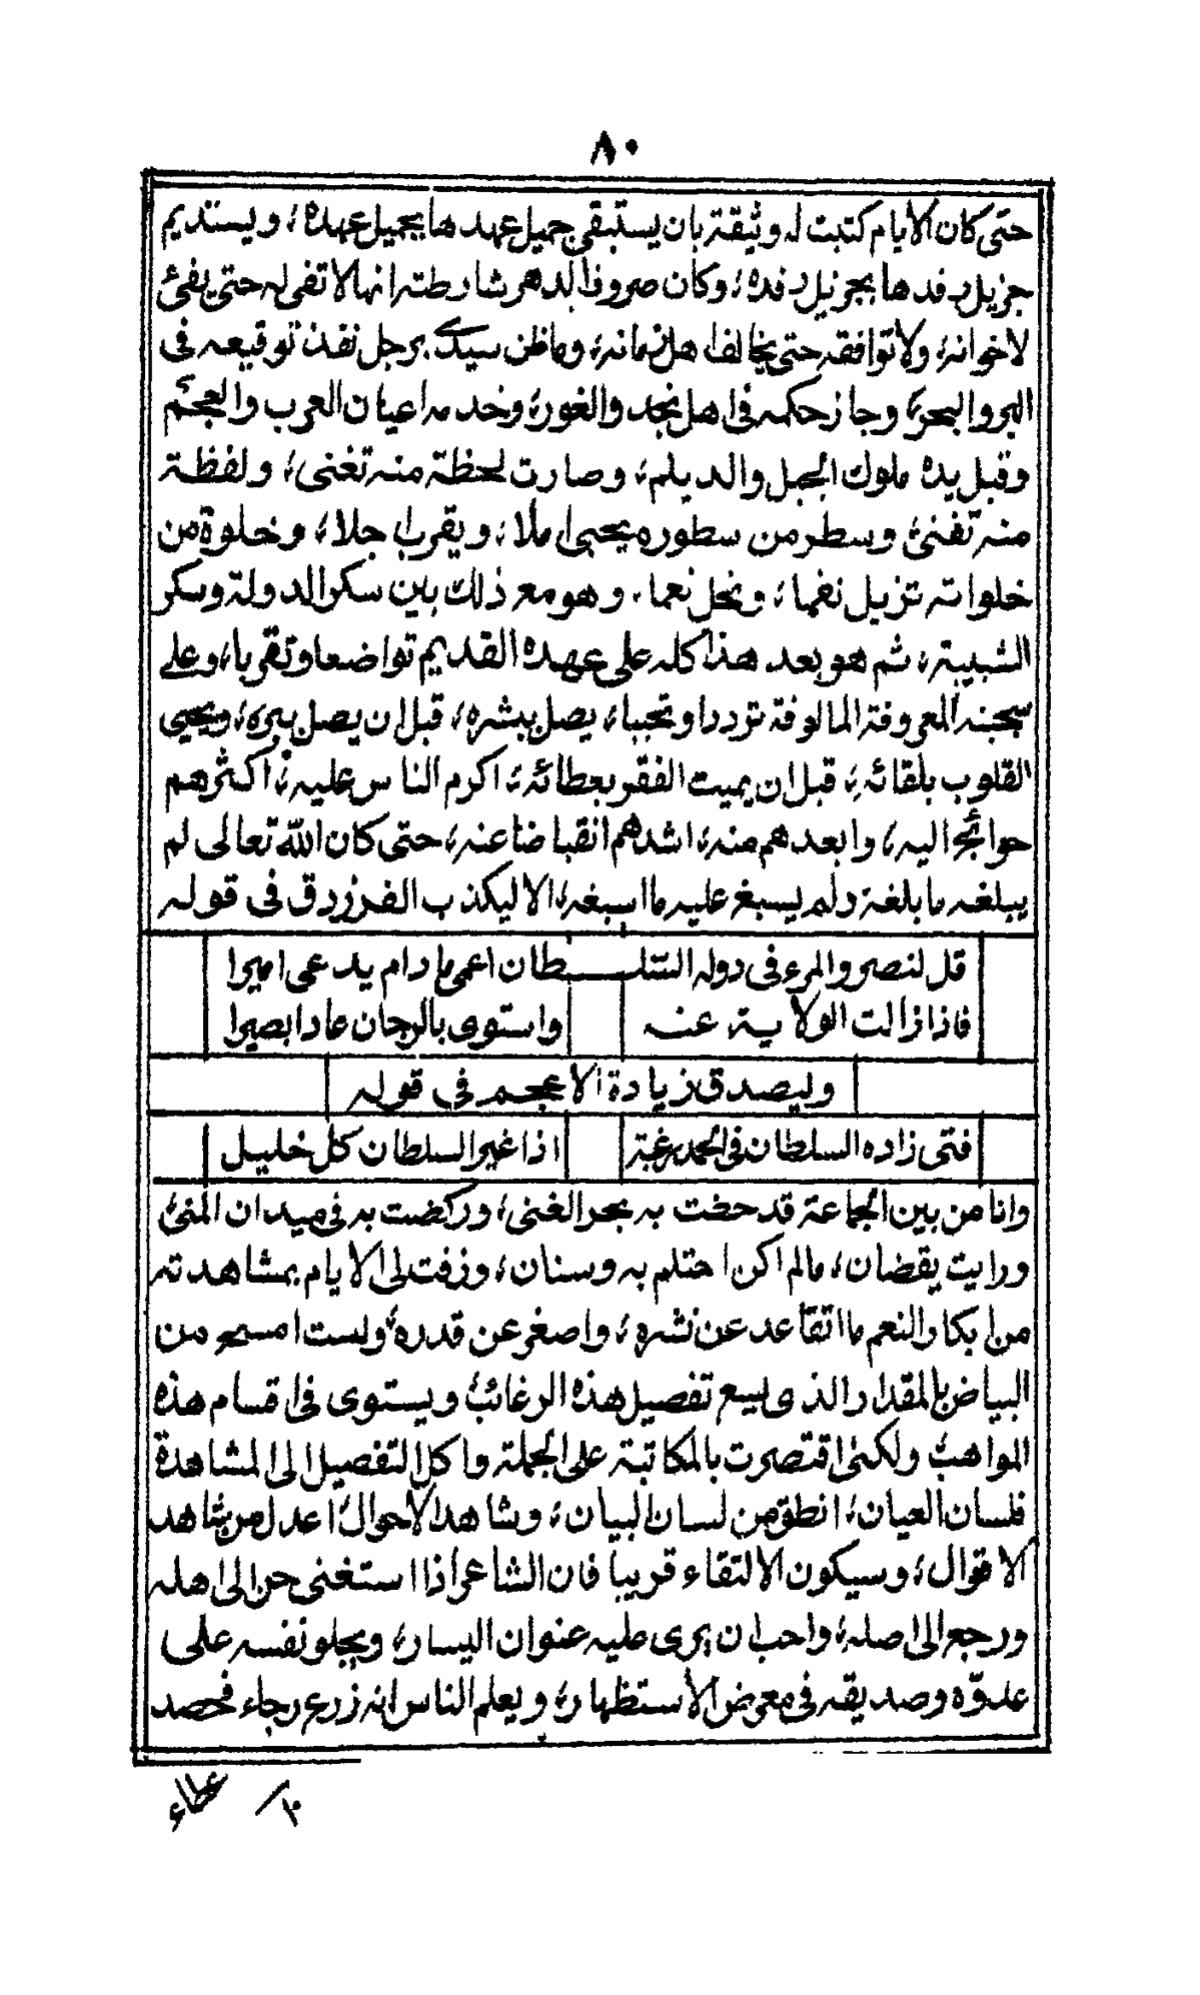 ٨٠
حتى كان الايام كتبت له وثيقة بان يستبقى جميل عهدها بجميل عهده، ويستديم
جزيل رفدها بجزيل رفده، وكان صروف الدهر شارطته انها لا تفى له حتى يفئ
لاخوانه، ولا توافقه حتى يخالف اهل زمانه، وما ظن سيدى برجل نفذ توقيعه فى
البر والبحر، وجاز حكمه فى اهل نجد والغور، وخدمه اعيان العرب والعجم
وقبل يده ملوك الجبل والديلم، وصارت لحظة منه تغنى، ولفظة
منه تفنى، وسطر من سطوره يحيى املا، ويقرب اجلا، وخلوة من
خلواته تزيل نغما، وتحل نعما، وهو مع ذلك بين سكر الدولة وسكر
الشبيبة، ثم هو بعد هذا كله على عهده القديم تواضعا وتقربا، وعلى
سجيته المعروفة المالوفة توددا وتحببا، يصل ببشره، قبل ان يصل ببره، ويحيى
القلوب بلقائه، قبل ان يميت الفقر بعطائه، اكرم الناس عليه، اكثرهم
حوائج اليه، وابعدهم منه، اشدهم انقباضا عنه، حتى كان الله تعالى لم
يبلغه ما بلغة ولم يسبغ عليه ما اسبغه، الا ليكذب الفرزدق فى قوله
قل لنصر والمرء فى دوله السلـطان اعمى ما دام يدعى اميرا
فاذا زالت الولاية عنه واستوى بالرجان عاد ابصيرا
وليصدق زيادة الاعجم فى قوله
فتى زاده السلطان فى الحمد رغبة اذا غير السلطان كل خليل
وانا من بين الجماعة قد حضت به بحر الغنى، وركضت به فى ميدان المنى
ورايت يقضان، مالم اكن احتلم به وسنان، وزفت الى الايام بمشاهدته
من ابكار النعم ما اتقاعد عن نشره، واصغر عن قدره، ولست امسح من
البياض بالمقدار الذى يسع تفصيل هذه الرغائب ويستوى فى اقسام هذه
المواهب ولكنى اقتصرت بالمكاتبة على الجملة واكل التفصيل الى المشاهدة
فلسان العيان، انطق من لسان البيان، وشاهد الاحوال، اعدل من شاهد
الاقوال، وسيكون الالتقاء قريبا فان الشاعر اذا استغنى حن الى اهله
ورجع الى اصله، واحب ان يرى عليه عنوان اليسار، ويجلو نفسه على
عدوّه وصديقه فى معرض الاستظهار، ويعلم الناس انه زرع رجاء فحصد
عطاء